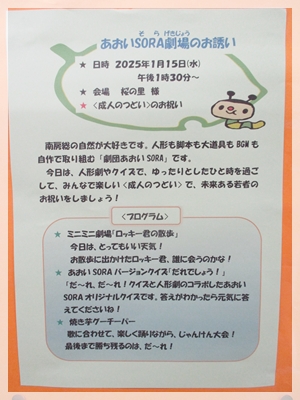 そら げきじょう
あおいSORA劇場のお誘い
★ 日時 2025年1月15日(水)
午後1時30分～
★ 会場 桜の里 様
★ 〈成人のつどい〉のお祝い
南房総の自然が大好きです。人形も脚本も大道具も BGM も
自作で取り組む「劇団あおい SORA」です。
今日は、人形劇やクイズで、ゆったりとしたひと時を過ご
して、みんなで楽しい〈成人のつどい〉で、未来ある若者の
お祝いをしましょう！
〈プログラム〉
★ ミニミニ劇場「ロッキー君の散歩」
今日は、とってもいい天気！
お散歩に出かけたロッキー君、誰に会うのかな！
★ あおい SORA バージョンクイズ「だれでしょう！」
「だ～れ、だ～れ！クイズと人形劇のコラボしたあおい
SORA オリジナルクイズです。答えがわかったら元気に答
えてくださいね！
★ 焼き芋グーチーパー
歌に合わせて、楽しく踊りながら、じゃんけん大会！
最後まで勝ち残るのは、だ～れ！